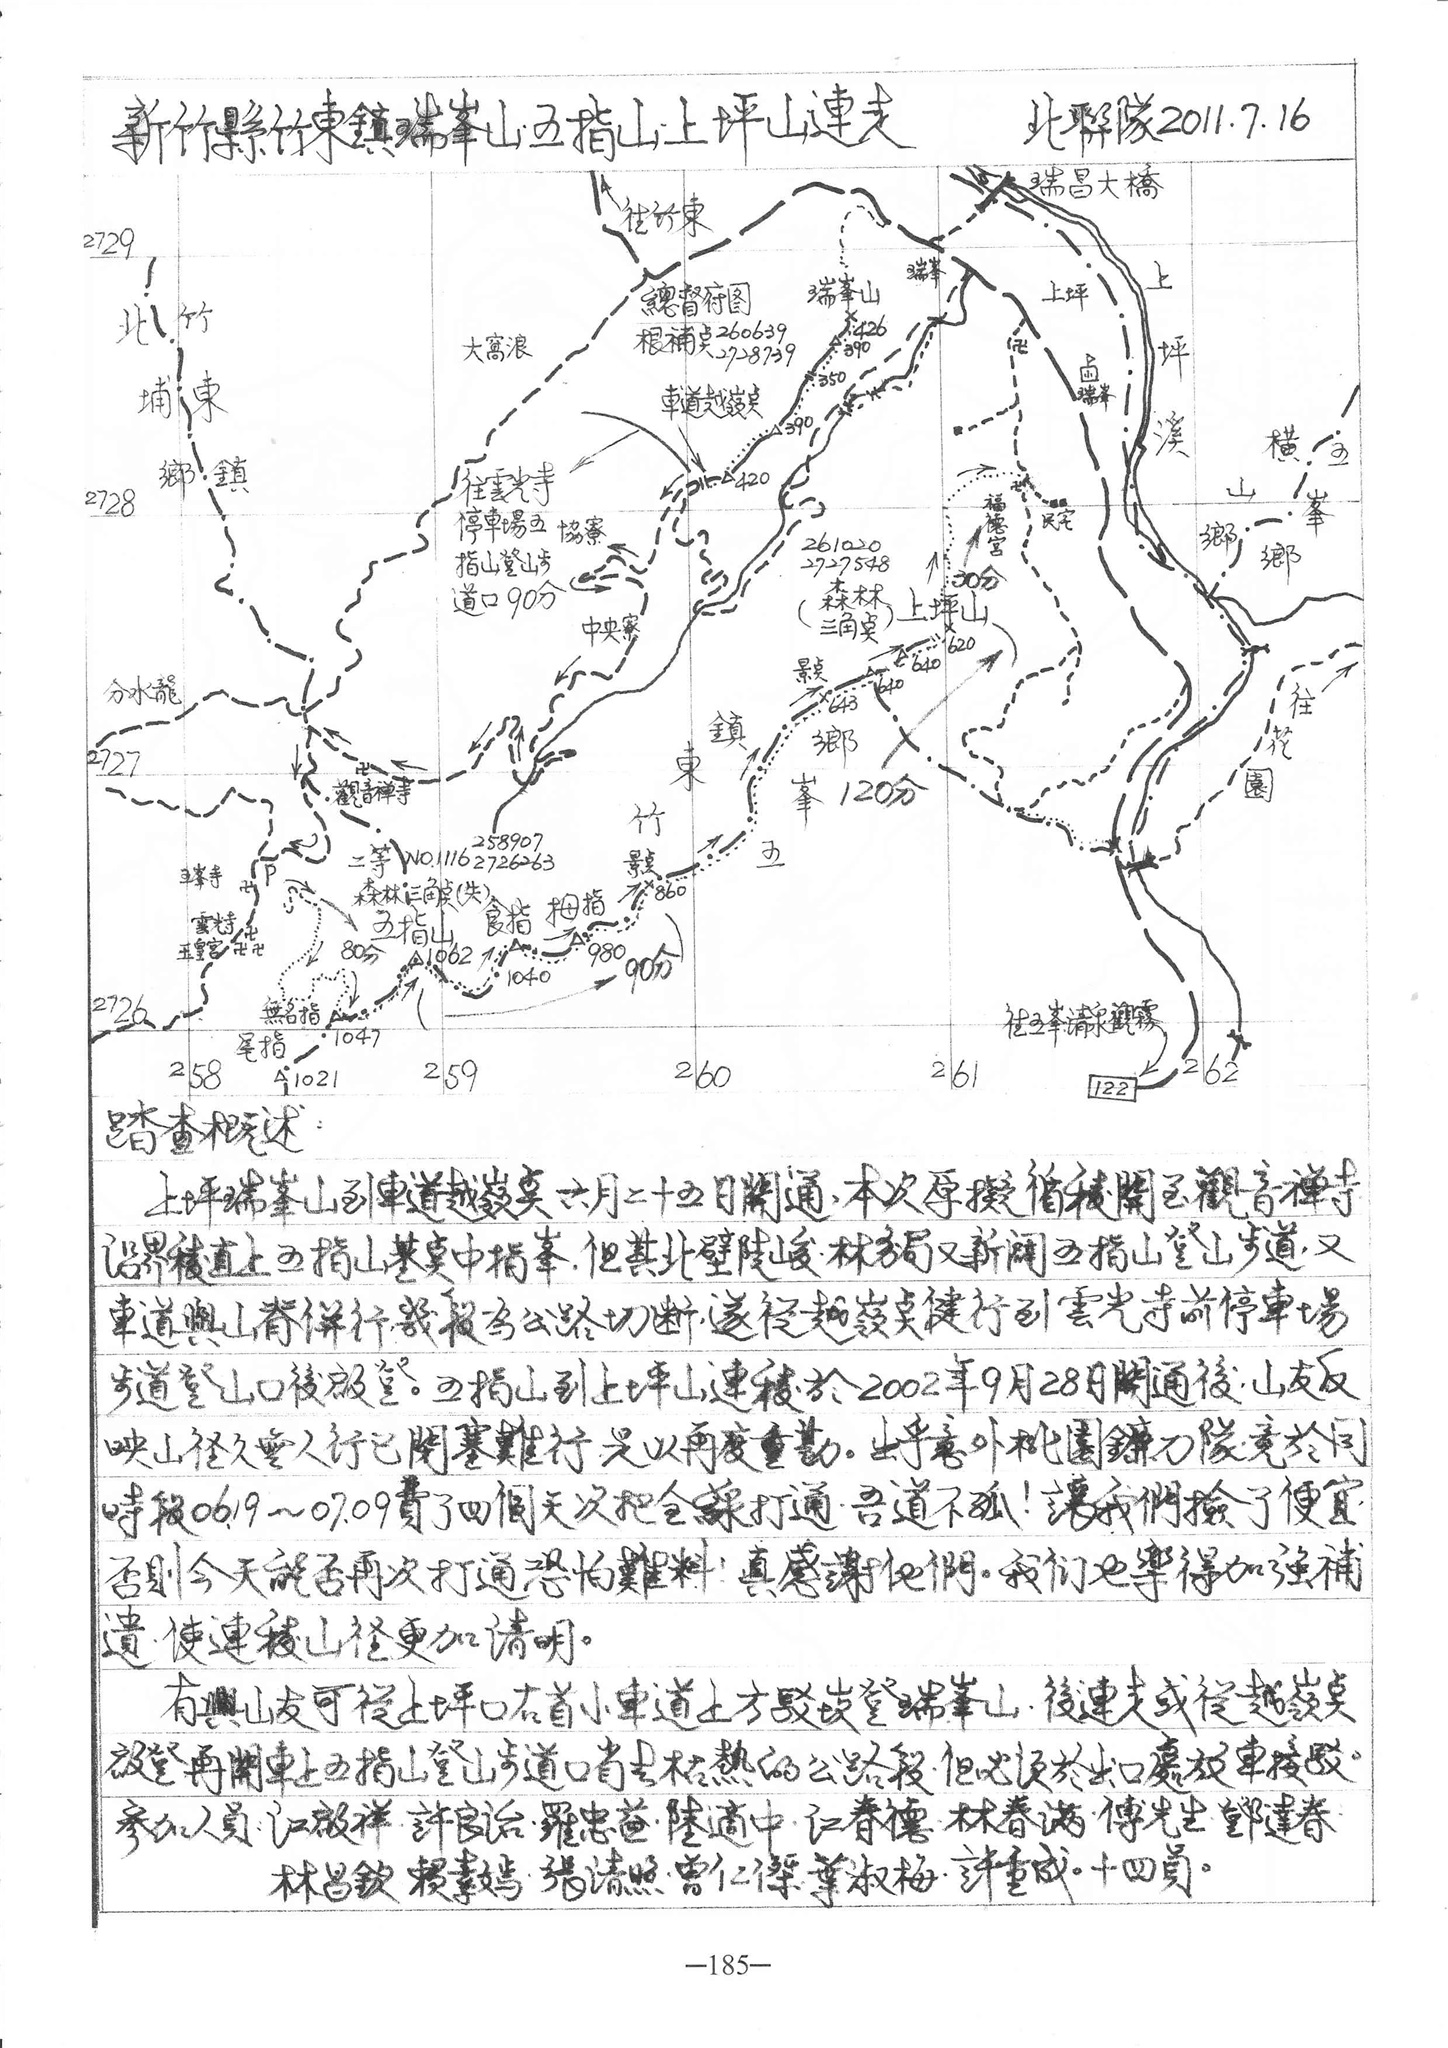 新竹縣竹東鎮瑞峯山.五指山.上坪山連走 北聯隊2011.7.16
瑞昌大橋
往竹東
2729
瑞峯
瑞峯山
上坪
上
坪
溪
總督府图
根補点 260639
2728739
426
390
350
北埔鄉
竹東鎮
大窩浪
車道越嶺点
390
瑞峯
420
橫山鄉
五峯鄉
2728
往雲光寺
停車場五
指山登山步
道口90分
協寮
福德宮
民宅
261020
2727548
(森林三角点)
上坪山
30分
620
中央寮
640
640
景点
643
分水龍
往花園
2727
觀音禪寺
竹東鎮
五峯鄉
120分
258907
2726263
二等 NO.1116
森林三角点(失)
景点
860
P
雲光寺
玉皇宮
五指山
1062
食指
1040
拇指
980
80分
90分
2726
無名指
1047
尾指
1021
往五峯.清泉.觀霧
122
258
259
260
261
262
踏查概述:
上坪瑞峯山到車道越嶺点六月二十五日開通.本次原擬循稜開至觀音禪寺
沿界稜直上五指山基点中指峯.但其北壁陡峻.林務局又新闢五指山登山步道.又
車道與山脊併行.幾段為公路切断.遂從越嶺点健行到雲光寺前停車場
步道登山口後啟登。五指山到上坪山連稜於2002年9月28日開通後.山友反
映山径久無人行已閉塞難行.是以再度重勘。出乎意外桃園鐮刀隊.竟於同
時段06.19～07.09費了四個天次把全綵打通.吾道不孤!讓我們撿了便宜.
否則今天能否再次打通恐怕難料!真感謝他們。我们也樂得加強補
遺.使連稜山径更加清明。
有興山友可從上坪口右首小車道上方駁崁登瑞峯山.後連走或從越嶺点
啟登再開車上五指山登山步道口省去枯熱的公路段.但必須於出口處放車接駁。
參加人員.江啟祥.許良治.羅忠益.陸適中.江春德.林春滿.傅先生.鄧達春.
林昌欽.賴素嫣.張清照.曾仁傑.葉淑梅.許重成。十四員。
—185—